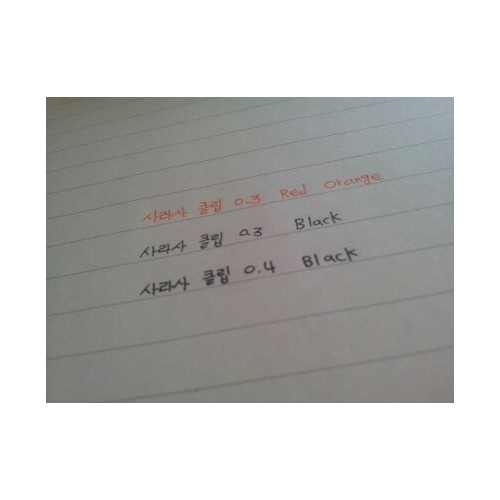 사라사 클립 0.3 Red Orange
사라사 클립 0.3 Black
사라사 클립 0.4 Black